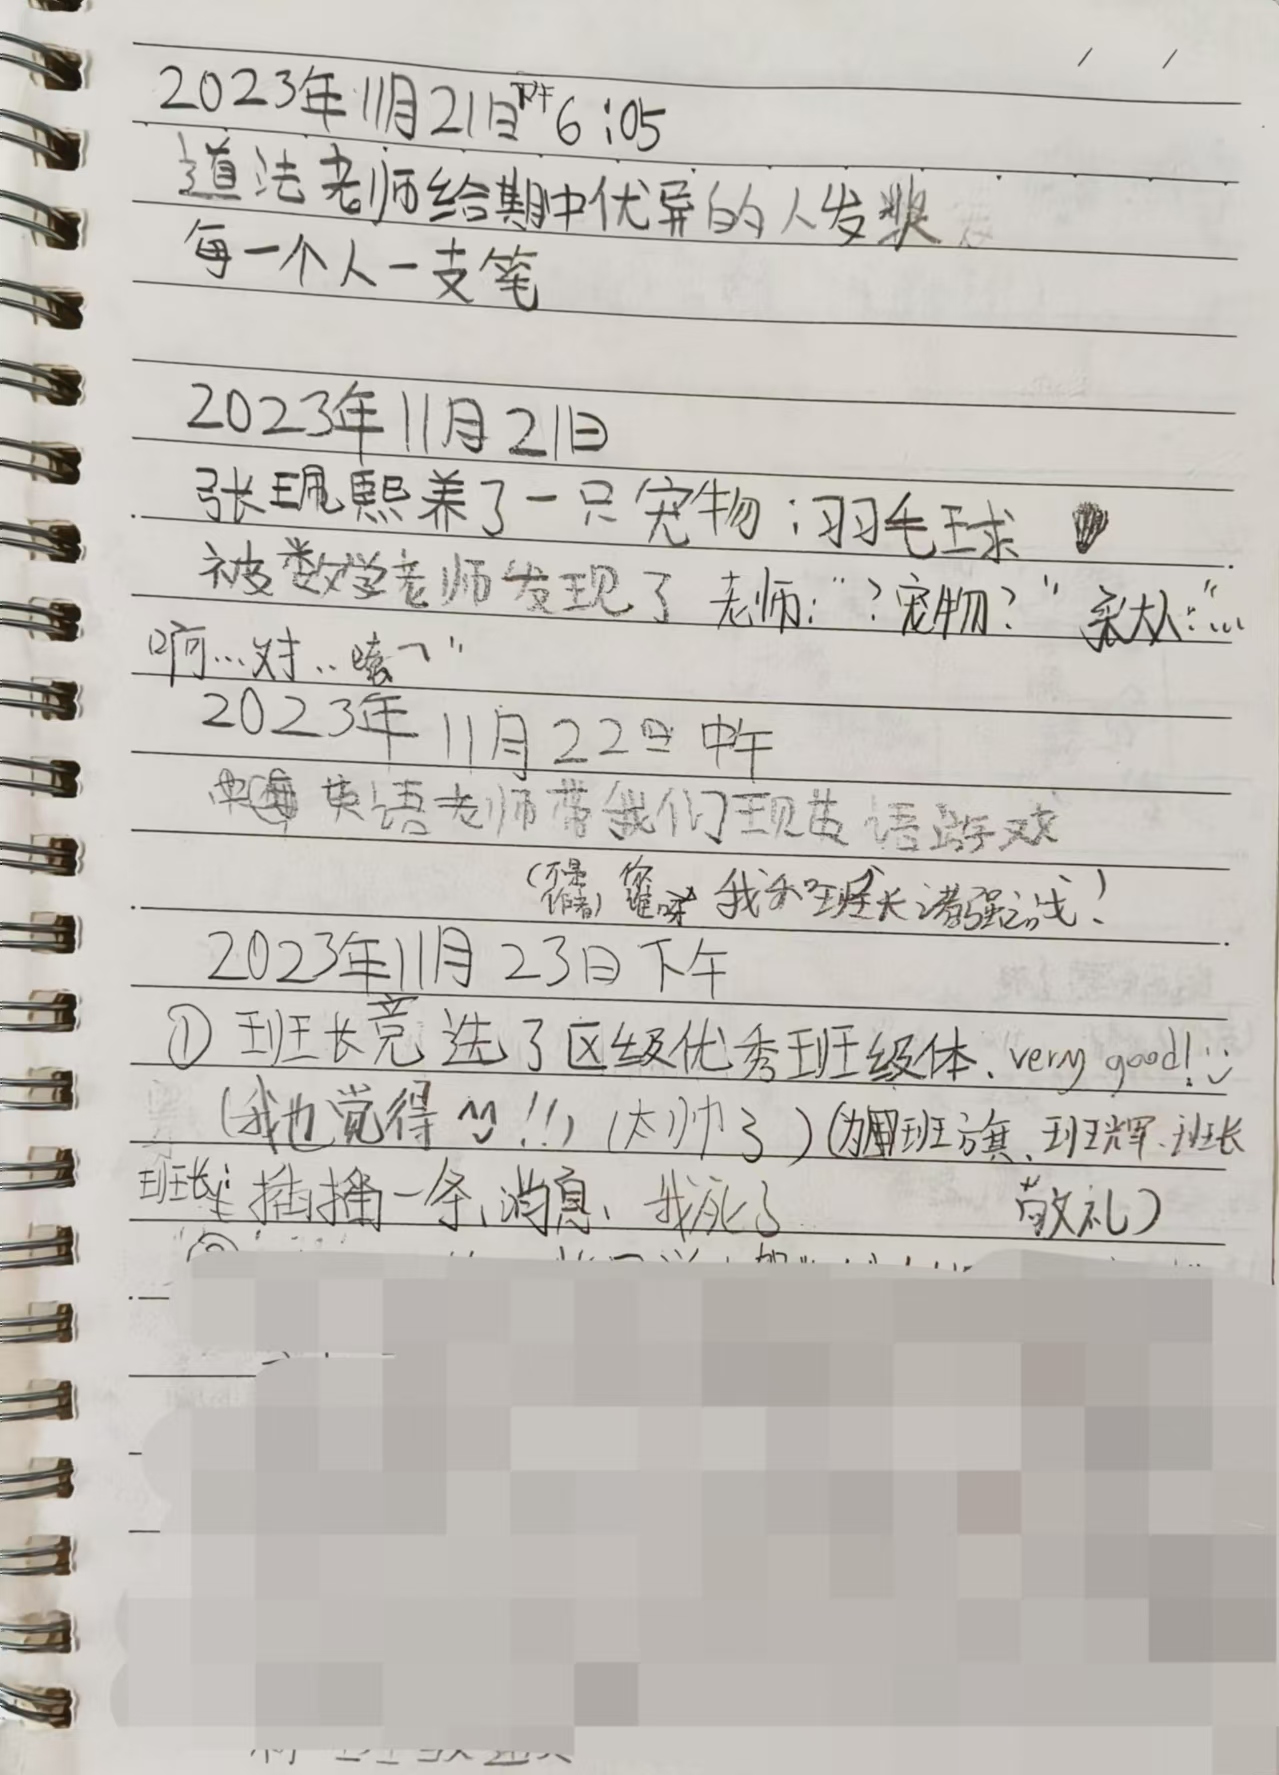 2023年11月21日下午6:05
道法老师给期中优异的人发奖
每一个人一支笔
2023年11月21日
张珮熙养了一只宠物:羽毛球
被数学老师发现了 老师:"?宠物?" 众人:"...
啊...对...嗯~"
2023年11月22日中午
英语老师带我们玩英语游戏
(不是作者) 你谁呀 我和班长请强应战!
2023年11月23日下午
① 班长竞选了区级优秀班级体、very good!
(我也觉得!!)(太帅了)(为班旗、班辉、班长
班长:插播一条、消息、我死了 敬礼)